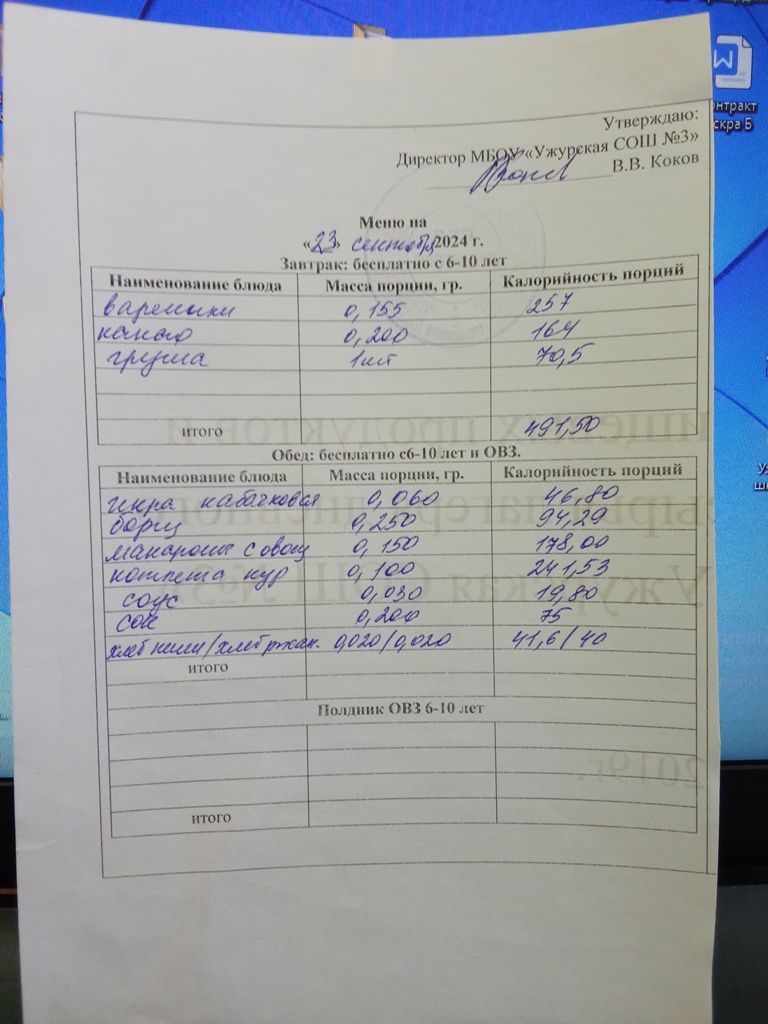 Утверждаю:
Директор МБОУ «Ужурская СОШ №3»
В.В. Коков
Меню на
«23» сентября 2024 г.
Завтрак: бесплатно с 6-10 лет
Наименование блюда Масса порции, гр. Калорийность порций
вареники 0,155 257
какао 0,200 164
груша 1шт 70,5
итого 491,50
Обед: бесплатно с6-10 лет и ОВЗ.
Наименование блюда Масса порции, гр. Калорийность порций
икра кабачковая 0,060 46,80
борщ 0,250 94,29
макароны с овощ 0,150 178,00
котлета кур 0,100 241,53
соус 0,030 19,80
сок 0,200 75
хлеб пшен/хлеб ржан. 0,020/0,020 41,6/40
итого
Полдник ОВЗ 6-10 лет
итого